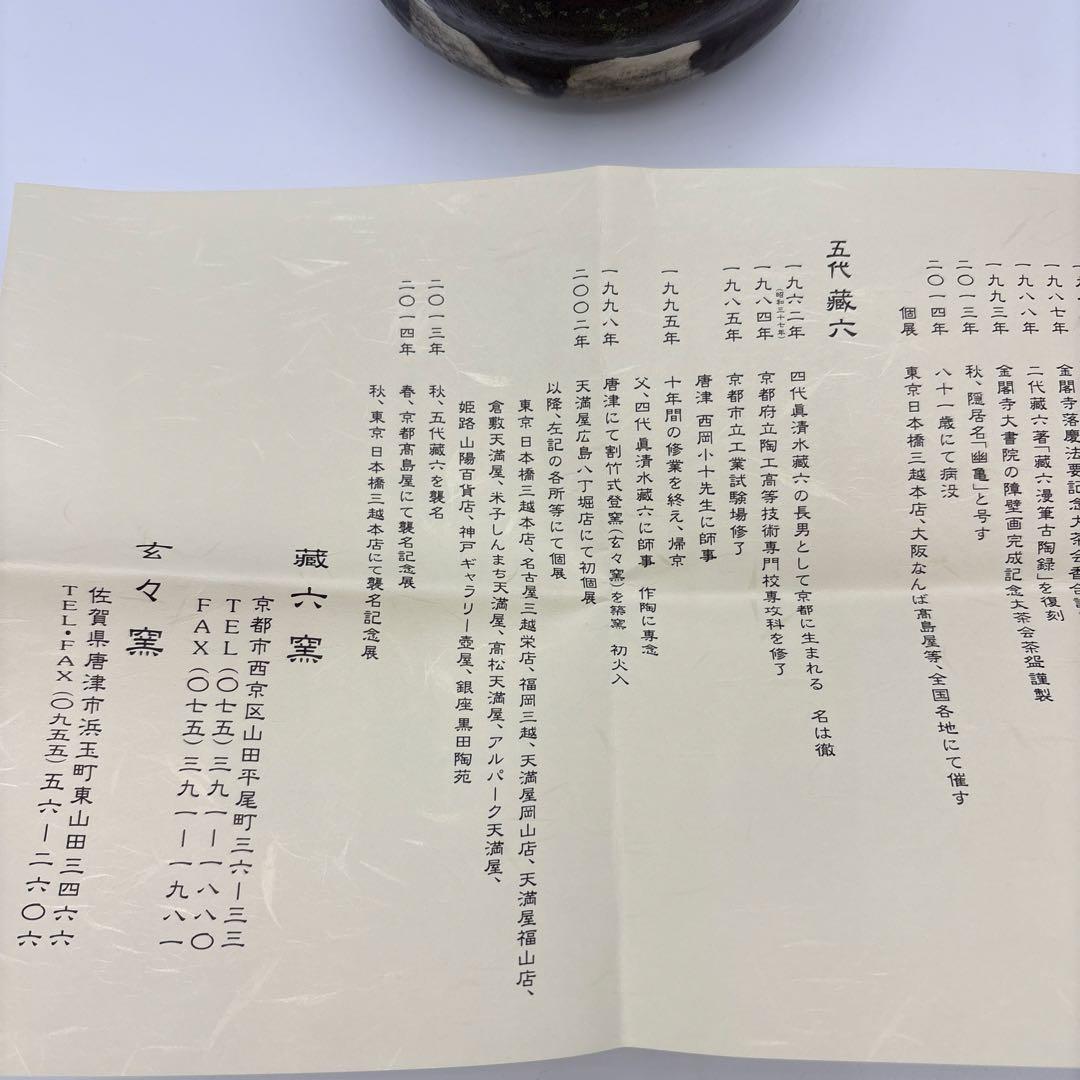 金閣寺落慶法要記念大茶会香合
一九八七年 二代藏六著「藏六漫筆古陶録」を復刻
一九八八年 金閣寺大書院の障壁画完成記念大茶会茶盌謹製
一九九三年 秋、隠居名「幽亀」と号す
二〇一三年 八十一歳にて病没
二〇一四年
個展 東京日本橋三越本店、大阪なんば髙島屋等、全国各地にて催す
五代 藏六
一九六二年(昭和三十七年) 四代眞清水藏六の長男として京都に生まれる 名は徹
一九八四年 京都府立陶工高等技術専門校専攻科を修了
一九八五年 京都市立工業試験場修了
唐津 西岡小十先生に師事
一九九五年 十年間の修業を終え、帰京
父、四代 眞清水藏六に師事 作陶に専念
一九九八年 唐津にて割竹式登窯(玄々窯)を築窯 初火入
二〇〇二年 天満屋広島八丁堀店にて初個展
以降、左記の各所等にて個展
東京 日本橋三越本店、名古屋三越栄店、福岡三越、天満屋岡山店、天満屋福山店、
倉敷天満屋、米子しんまち天満屋、高松天満屋、アルパーク天満屋、
姫路 山陽百貨店、神戸 ギャラリー壺屋、銀座 黒田陶苑
二〇一三年 秋、五代藏六を襲名
二〇一四年 春、京都髙島屋にて襲名記念展
秋、東京 日本橋三越本店にて襲名記念展
藏六窯
京都市西京区山田平尾町三六―三三
TEL(〇七五)三九一―一八八〇
FAX(〇七五)三九一―一九八一
玄々窯
佐賀県唐津市浜玉町東山田三四六六
TEL・FAX(〇九五五)五六―二六〇六